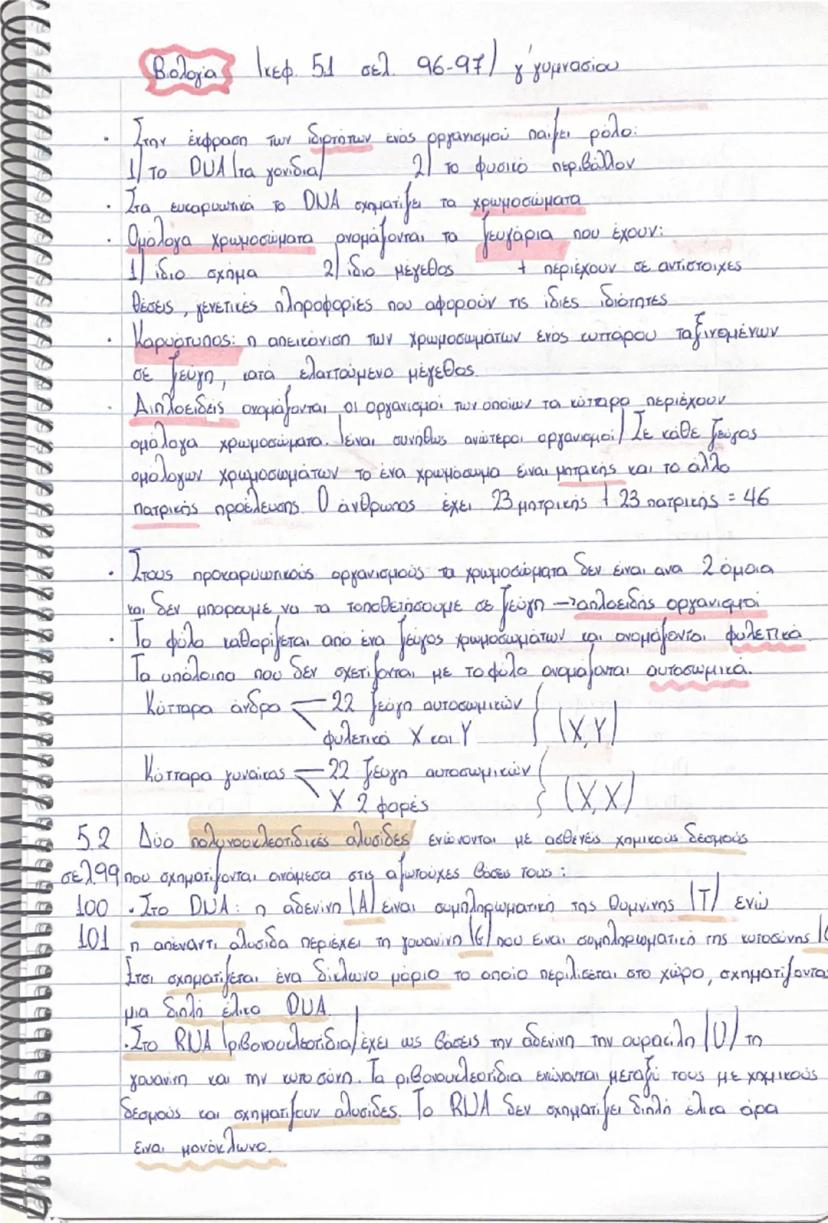 Βιολογία (κεφ. 5.1 σελ. 96-97) γ' γυμνασίου
· Στην έκφραση των ιδιοτήτων ενός οργανισμού παίζει ρόλο:
1) το DNA (τα γονίδια) 2) το φυσικό περιβάλλον
· Στα ευκαρυωτικά το DNA σχηματίζει τα χρωμοσώματα
· Ομόλογα χρωμοσώματα ονομάζονται τα ζευγάρια που έχουν:
1) ίδιο σχήμα 2) ίδιο μέγεθος + περιέχουν σε αντίστοιχες
θέσεις, γενετικές πληροφορίες που αφορούν τις ίδιες ιδιότητες
· Καρυότυπος: η απεικόνιση των χρωμοσωμάτων ενός κυττάρου ταξινομένων
σε ζεύγη, κατά ελαττούμενο μέγεθος.
· Διπλοειδείς ονομάζονται οι οργανισμοί των οποίων τα κύτταρα περιέχουν
ομόλογα χρωμοσώματα. (είναι συνήθως ανώτεροι οργανισμοί) Σε κάθε ζεύγος
ομόλογων χρωμοσωμάτων το ένα χρωμόσωμα είναι μητρικής και το άλλο
πατρικής προέλευσης. Ο άνθρωπος έχει 23 μητρικής + 23 πατρικής = 46
· Στους προκαρυωτικούς οργανισμούς τα χρωμοσώματα δεν είναι ανα 2 όμοια
και δεν μπορούμε να τα τοποθετήσουμε σε ζεύγη → απλοειδής οργανισμοί
· Το φύλο καθορίζεται από ένα ζεύγος χρωμοσωμάτων και ονομάζονται φυλετικά.
Τα υπόλοιπα που δεν σχετίζονται με το φύλο ονομάζονται αυτοσωμικά.
Κύτταρα άνδρα — 22 ζεύγη αυτοσωμικών
φυλετικά Χ και Υ } (Χ,Υ)
Κύτταρα γυναίκας — 22 ζεύγη αυτοσωμικών
Χ 2 φορές } (Χ,Χ)
5.2 Δύο πολυνουκλεοτιδικές αλυσίδες ενώνονται με ασθενείς χημικούς δεσμούς
σελ99 που σχηματίζονται ανάμεσα στις αζωτούχες βάσεις τους:
100 · Στο DNA: η αδενίνη (Α) είναι συμπληρωματική της θυμίνης (Τ) ενώ
101 η απέναντι αλυσίδα περιέχει τη γουανίνη (G) που είναι συμπληρωματικό της κυτοσίνης (C
Έτσι σχηματίζεται ένα δίκλωνο μόριο το οποίο περιλίσεται στο χώρο, σχηματίζοντας
μια διπλή έλικα DNA.
· Στο RNA (ριβονουκλεοτίδια) έχει ως βάσεις την αδενίνη την ουρακίλη (U) τη
γουανίνη και την κυτοσίνη. Τα ριβονουκλεοτίδια ενώνονται μεταξύ τους με χημικούς
δεσμούς και σχηματίζουν αλυσίδες. Το RNA δεν σχηματίζει διπλή έλικα άρα
είναι μονόκλωνο.